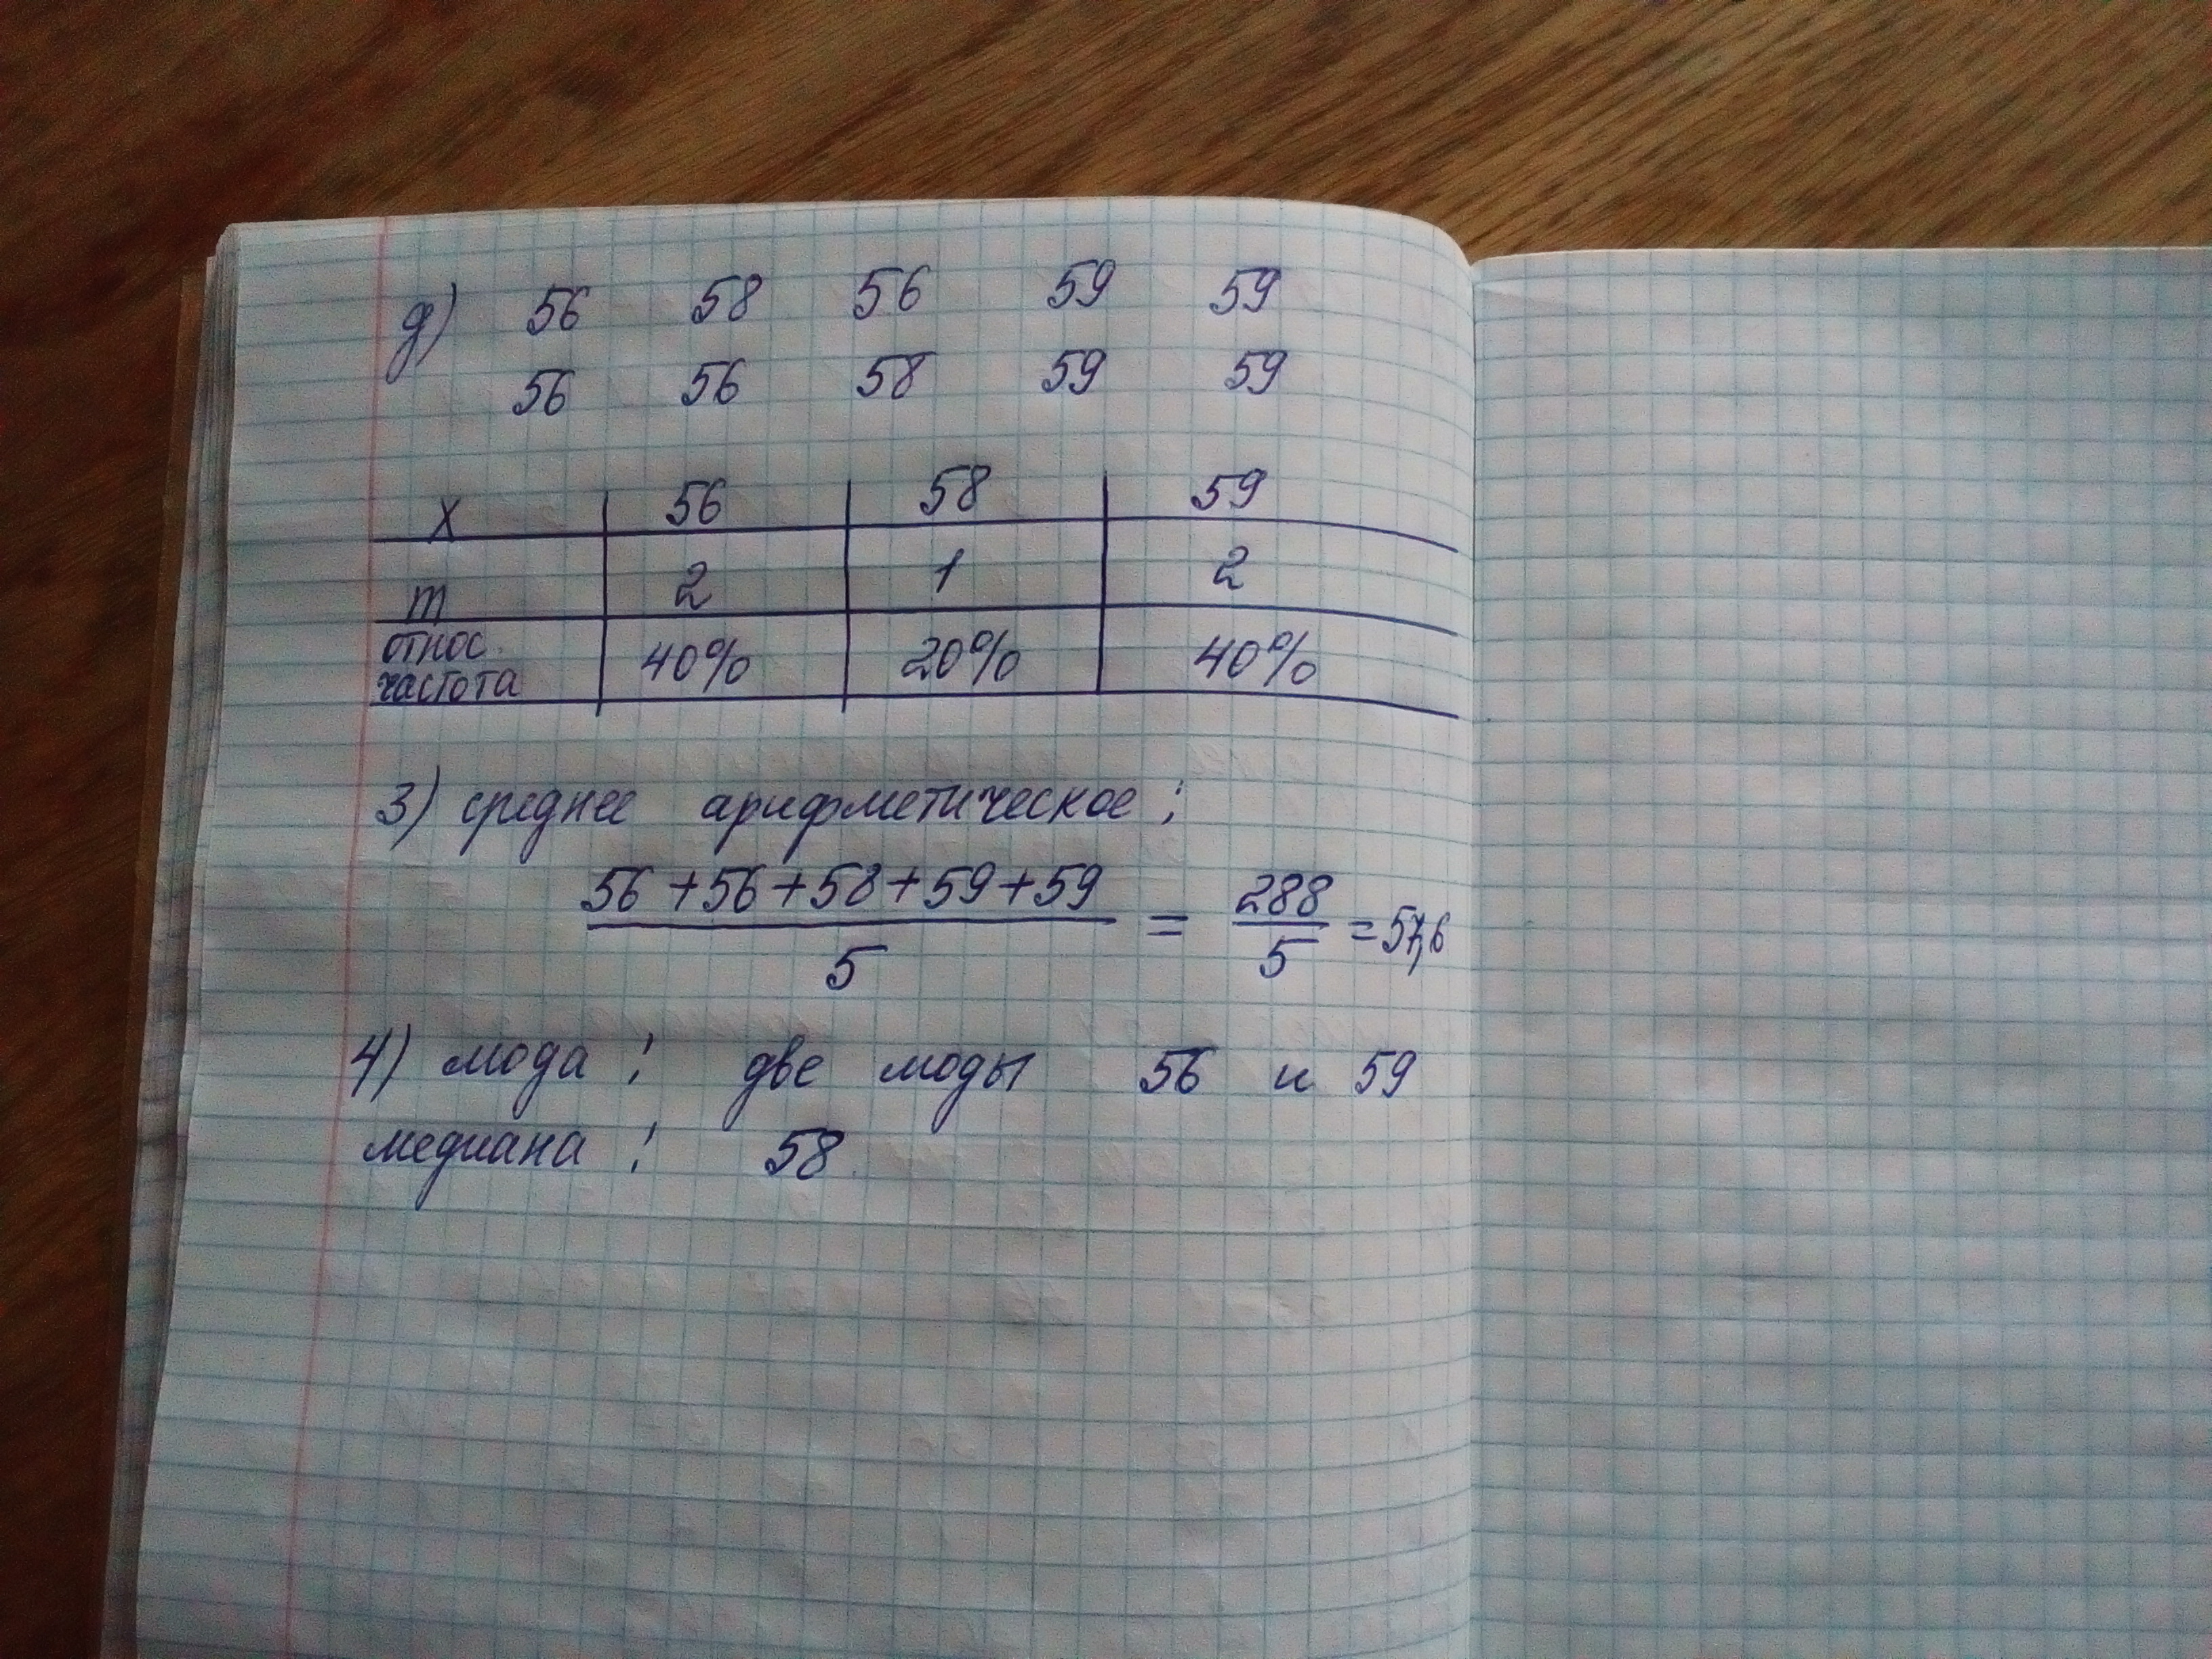 д) 56 58 56 59 59
56 56 58 59 59
x 56 58 59
m 2 1 2
относ.
частота 40% 20% 40%
3) среднее арифметическое:
56+56+58+59+59
5
= 288
5
= 57,6
4) мода: две моды 56 и 59
медиана: 58.